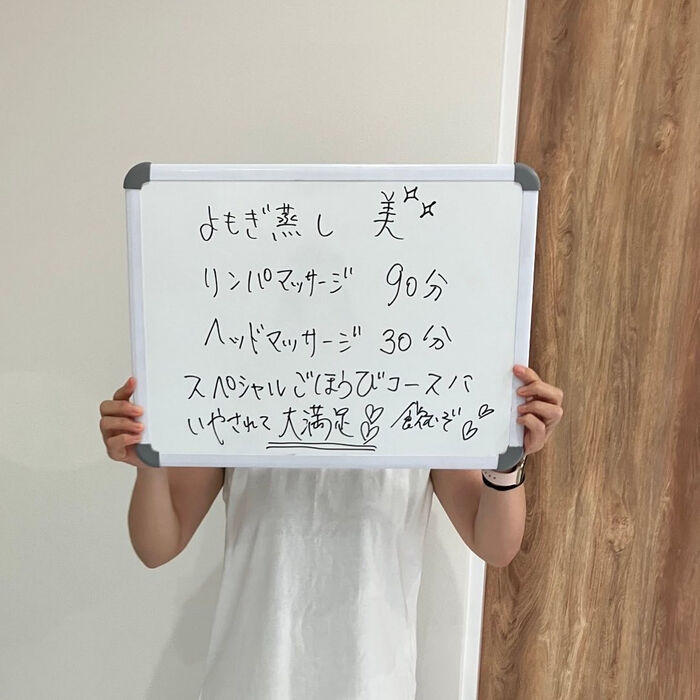 よもぎ蒸し 美
リンパマッサージ 90分
ヘッドマッサージ 30分
スペシャルごほうびコースに
いやされて大満足 飲むぞ